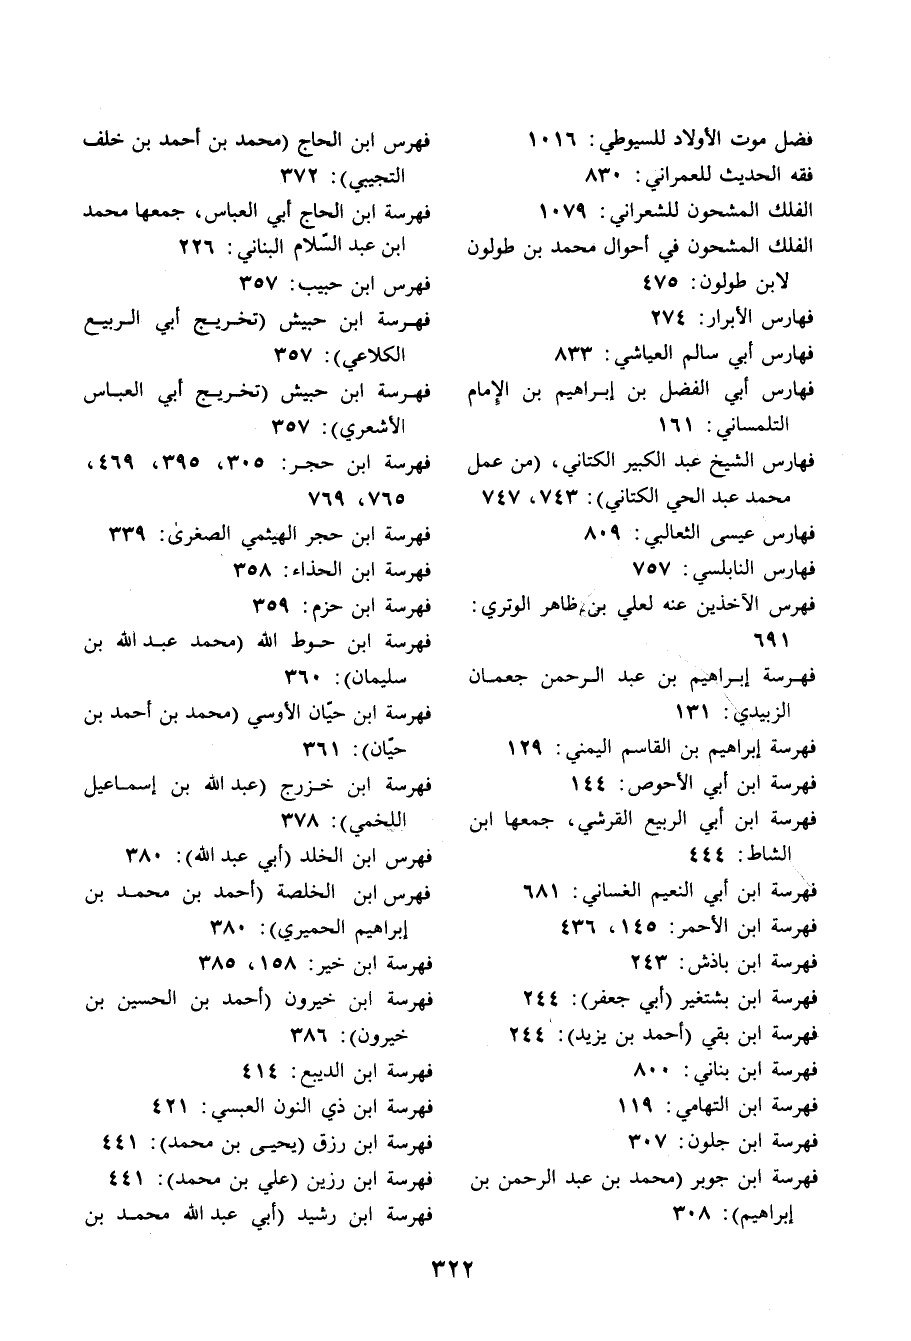 فضل موت الأولاد للسيوطي: ١٠١٦
فقه الحديث للعمراني: ٨٣٠
الفلك المشحون للشعراني: ١٠٧٩
الفلك المشحون في أحوال محمد بن طولون
لابن طولون: ٤٧٥
فهارس الأبرار: ٢٧٤
فهارس أبي سالم العياشي: ٨٣٣
فهارس أبي الفضل بن إبراهيم بن الإمام
التلمساني: ١٦١
فهارس الشيخ عبد الكبير الكتاني، (من عمل
محمد عبد الحي الكتاني): ٧٤٣، ٧٤٧
فهارس عيسى الثعالبي: ٨٠٩
فهارس النابلسي: ٧٥٧
فهرس الآخذين عنه لعلي بن ظاهر الوتري:
٦٩١
فهرسة إبراهيم بن عبد الرحمن جعمان
الزبيدي: ١٣١
فهرسة إبراهيم بن القاسم اليمني: ١٢٩
فهرسة ابن أبي الأحوص: ١٤٤
فهرسة ابن أبي الربيع القرشي، جمعها ابن
الشاط: ٤٤٤
فهرسة ابن أبي النعيم الغساني: ٦٨١
فهرسة ابن الأحمر: ١٤٥، ٤٣٦
فهرسة ابن باذش: ٢٤٣
فهرسة ابن بشتغير (أبي جعفر): ٢٤٤
فهرسة ابن بقي (أحمد بن يزيد): ٢٤٤
فهرسة ابن بناني: ٨٠٠
فهرسة ابن التهامي: ١١٩
فهرسة ابن جلون: ٣٠٧
فهرسة ابن جوبر (محمد بن عبد الرحمن بن
إبراهيم): ٣٠٨
فهرس ابن الحاج (محمد بن أحمد بن خلف
التجيبي): ٣٧٢
فهرسة ابن الحاج أبي العباس، جمعها محمد
ابن عبد السّلام البناني: ٢٢٦
فهرس ابن حبيب: ٣٥٧
فهرسة ابن حبيش (تخريج أبي الربيع
الكلاعي): ٣٥٧
فهرسة ابن حبيش (تخريج أبي العباس
الأشعري): ٣٥٧
فهرسة ابن حجر: ٣٠٥، ٣٩٥، ٤٦٩،
٧٦٥، ٧٦٩
فهرسة ابن حجر الهيثمي الصغرىٰ: ٣٣٩
فهرسة ابن الحذاء: ٣٥٨
فهرسة ابن حزم: ٣٥٩
فهرسة ابن حوط الله (محمد عبد الله بن
سليمان): ٣٦٠
فهرسة ابن حيّان الأوسي (محمد بن أحمد بن
حيّان): ٣٦١
فهرسة ابن خزرج (عبد الله بن إسماعيل
اللخمي): ٣٧٨
فهرس ابن الخلد (أبي عبد الله): ٣٨٠
فهرس ابن الخلصة (أحمد بن محمد بن
إبراهيم الحميري): ٣٨٠
فهرسة ابن خير: ١٥٨، ٣٨٥
فهرسة ابن خيرون (أحمد بن الحسين بن
خيرون): ٣٨٦
فهرسة ابن الديبع: ٤١٤
فهرسة ابن ذي النون العبسي: ٤٢١
فهرسة ابن رزق (يحيى بن محمد): ٤٤١
فهرسة ابن رزين (علي بن محمد): ٤٤١
فهرسة ابن رشيد (أبي عبد الله محمد بن
٣٢٢